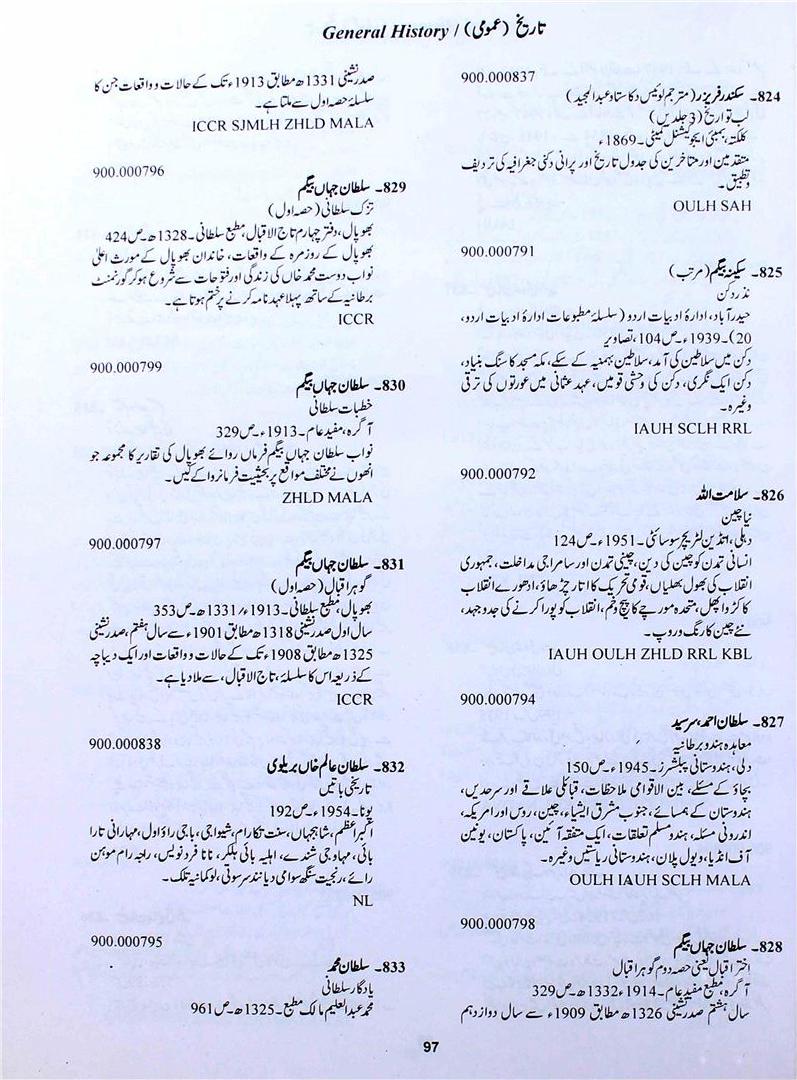 General History / تاریخ (عمومی)
900.000837
824۔ سکندر فریزر (مترجم لوئیس دکاستا و عبدالمجید)
لب تواریخ (3 جلدیں)
کلکتہ، بمبئی ایجوکیشنل کمیٹی۔ 1869ء
متقدمین اور متاخرین کی جدول تاریخ اور پرانی دکنی جغرافیہ کی تردیف
و تطبیق۔
OULH SAH
900.000791
825۔ سکینہ بیگم (مرتب)
نذر دکن
حیدرآباد، ادارۂ ادبیات اردو (سلسلۂ مطبوعات ادارۂ ادبیات اردو،
20)۔ 1939ء۔ ص 104، تصاویر
دکن میں سلاطین کی آمد، سلاطین بہمنیہ کے سکے، مکہ مسجد کا سنگ بنیاد،
دکن ایک نگری، دکن کی وحشی قومیں، عہد عثمانی میں عورتوں کی ترقی
وغیرہ۔
IAUH SCLH RRL
900.000792
826۔ سلامت اللہ
نیا چین
دہلی، انڈین لٹریچر سوسائٹی۔ 1951ء۔ ص 124
انسانی تمدن کو چین کی دین، چینی تمدن اور سامراجی مداخلت، جمہوری
انقلاب کی بھول بھلیاں، قومی تحریک کا اتار چڑھاؤ، ادھورے انقلاب
کا کڑوا پھل، متحدہ مورچے کا پیچ و خم، انقلاب کو پورا کرنے کی جدوجہد،
نئے چین کا رنگ و روپ۔
IAUH OULH ZHLD RRL KBL
900.000794
827۔ سلطان احمد، سر سید
معاہدہ ہندو برطانیہ
دلی، ہندوستانی پبلشرز۔ 1945ء۔ ص 150
بچاؤ کے مسئلے، بین الاقوامی ملاحظات، قبائلی علاقے اور سرحدیں،
ہندوستان کے ہمسائے، جنوب مشرق ایشیاء، چین، روس اور امریکہ،
اندرونی مسئلہ، ہندو مسلم تعلقات، ایک متفقہ آئین، پاکستان، یونین
آف انڈیا، ویول پلان، ہندوستانی ریاستیں وغیرہ۔
OULH IAUH SCLH MALA
900.000798
828۔ سلطان جہاں بیگم
اختر اقبال یعنی حصہ دوم گوہر اقبال
آگرہ، مطبع مفید عام۔ 1914ء 1332ھ۔ ص 329
سال ہشتم صدر نشینی 1326ھ مطابق 1909ء سے سال دوازدہم
صدر نشینی 1331ھ مطابق 1913ء تک کے حالات و واقعات جن کا
سلسلۂ حصہ اول سے ملتا ہے۔
ICCR SJMLH ZHLD MALA
900.000796
829۔ سلطان جہاں بیگم
تزک سلطانی (حصہ اول)
بھوپال، دفتر چہارم تاج الاقبال، مطبع سلطانی۔ 1328ھ۔ ص 424
بھوپال کے روزمرہ کے واقعات، خاندان بھوپال کے مورث اعلیٰ
نواب دوست محمد خاں کی زندگی اور فتوحات سے شروع ہو کر گورنمنٹ
برطانیہ کے ساتھ پہلا عہد نامہ کرنے پر ختم ہوتا ہے۔
ICCR
900.000799
830۔ سلطان جہاں بیگم
خطبات سلطانی
آگرہ، مفید عام۔ 1913ء۔ ص 329
نواب سلطان جہاں بیگم فرماں روائے بھوپال کی تقاریر کا مجموعہ جو
انھوں نے مختلف مواقع پر بحیثیت فرمانروا کے کیں۔
ZHLD MALA
900.000797
831۔ سلطان جہاں بیگم
گوہر اقبال (حصہ اول)
بھوپال، مطبع سلطانی۔ 1913ء/1331ھ۔ ص 353
سال اول صدر نشینی 1318ھ مطابق 1901ء سے سال ہفتم، صدر نشینی
1325ھ مطابق 1908ء تک کے حالات و واقعات اور ایک دیباچہ
کے ذریعہ اس کا سلسلۂ، تاج الاقبال، سے ملا دیا ہے۔
ICCR
900.000838
832۔ سلطان عالم خاں بریلوی
تاریخی باتیں
پونا۔ 1954ء۔ ص 192
اکبر اعظم، شاہجہاں، سنت تکارام، شیواجی، باجی راؤ اول، مہارانی تارا
بائی، مہاوجی شندے، اہلیہ بائی ہلکر، نانا فردنویس، راجہ رام موہن
رائے، رنجیت سنگھ سوامی دیانند سرسوتی، لوکمانیہ تلک۔
NL
900.000795
833۔ سلطان محمد
یادگار سلطانی
محمد عبدالعلیم مالک مطبع۔ 1325ھ۔ ص 961
97